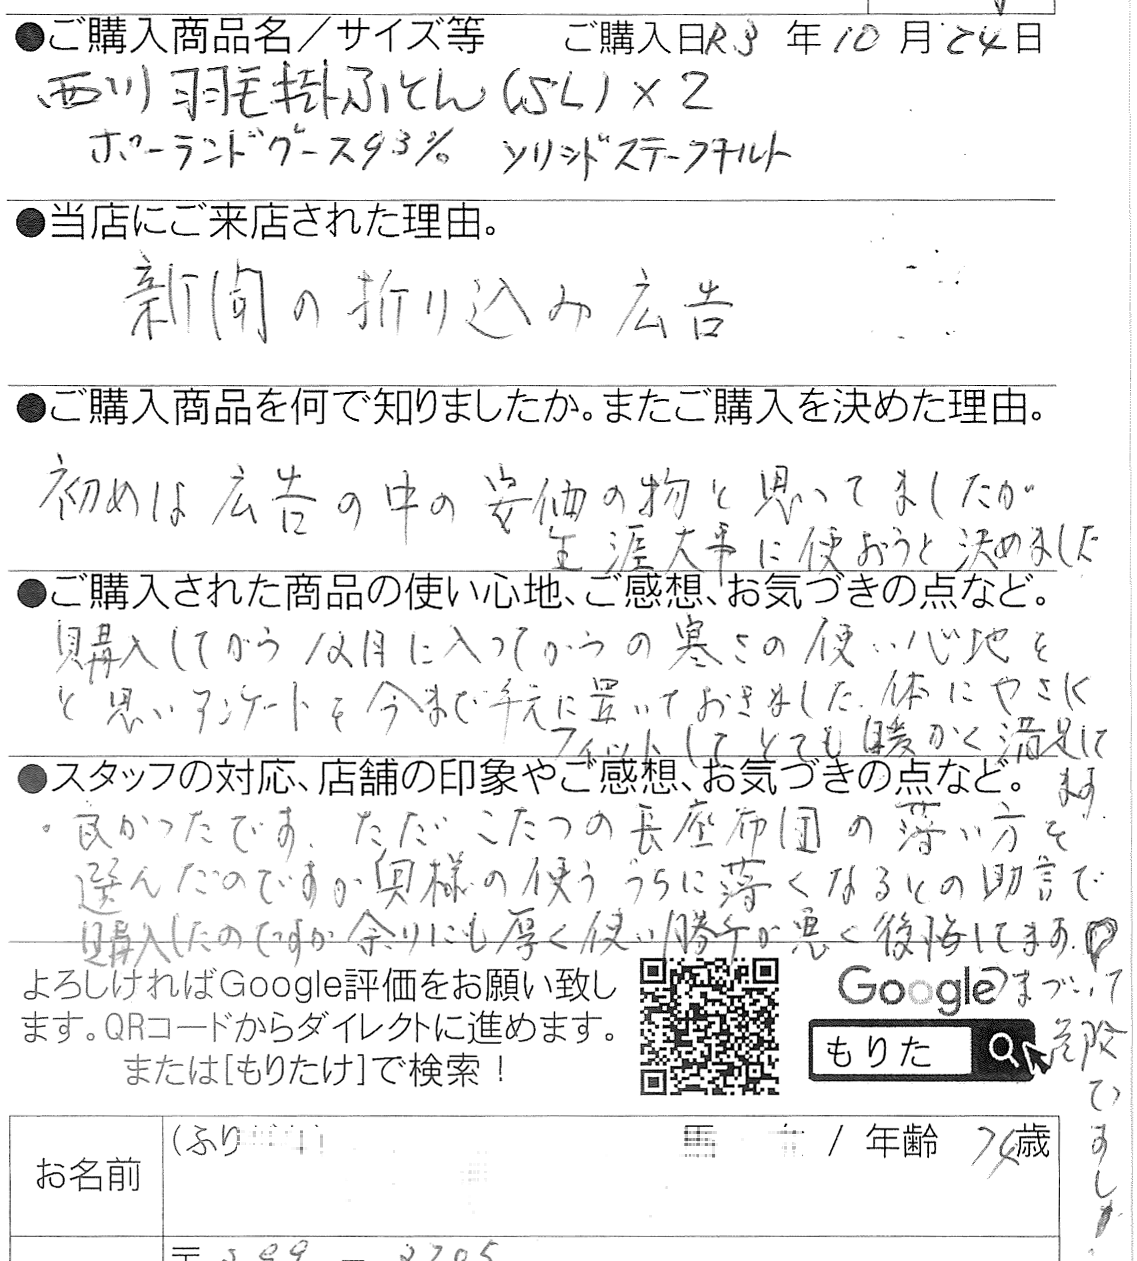 ●ご購入商品名／サイズ等 ご購入日R3年10月24日
西川羽毛掛ふとん(SL)×2
ポーランドグース93% ソリッドステーフキルト
●当店にご来店された理由。
新聞の折り込み広告
●ご購入商品を何で知りましたか。またご購入を決めた理由。
初めは広告の中の安価の物と思ってましたが
生涯大事に使おうと決めました
●ご購入された商品の使い心地、ご感想、お気づきの点など。
購入してから12月に入ってからの寒さの使い心地を
と思いアンケートを今まで手元に置いておきました。体にやさしく
フィットしてとても暖かく満足して
ます
●スタッフの対応、店舗の印象やご感想、お気づきの点など。
・良かったです。ただこたつの長座布団の薄い方を
選んだのですが奥様の使ううちに薄くなるとの助言で
購入したのですが余りにも厚く使い勝手が悪く後悔してます。
つまづいて
危険
ですし!
よろしければGoogle評価をお願い致し
ます。QRコードからダイレクトに進めます。
または[もりたけ]で検索！
Google
もりた
お名前 (ふり / 年齢 74歳
〒399-3705